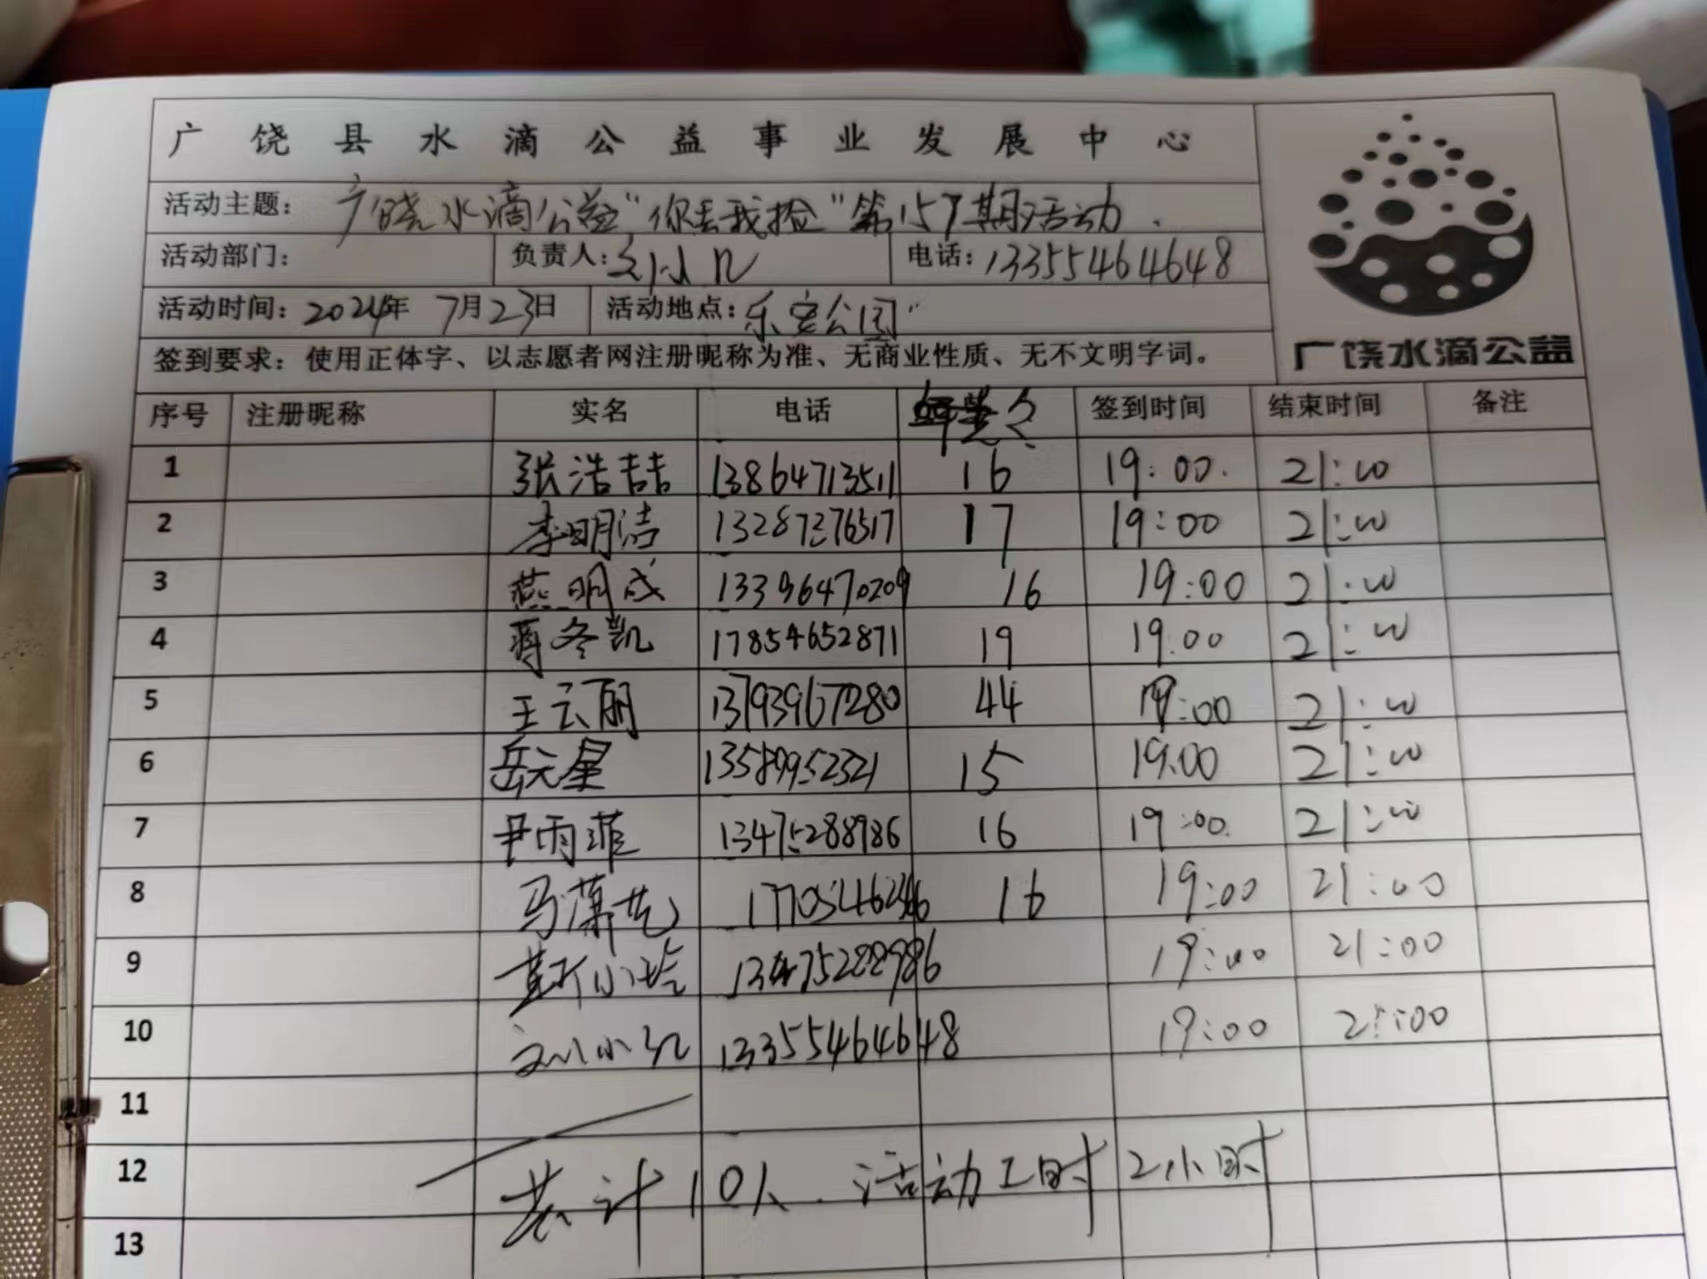 广饶县水滴公益事业发展中心
活动主题：广饶水滴公益"你丢我捡"第157期活动.
活动部门： 负责人：刘小红 电话：13355464648
活动时间：2024年 7月23日 活动地点：乐安公园
签到要求：使用正体字、以志愿者网注册昵称为准、无商业性质、无不文明字词。
广饶水滴公益
序号 注册昵称 实名 电话 签到时间 结束时间 备注
1 张浩喆 13864713511 16 19:00 21:00
2 李明洁 13287376517 17 19:00 21:00
3 燕明成 13396470209 16 19:00 21:00
4 蒋冬凯 17854652871 19 19:00 21:00
5 王云丽 13793967280 44 19:00 21:00
6 岳元星 13589952321 15 19:00 21:00
7 尹雨菲 13475288986 16 19:00 21:00
8 马 艺 16 19:00 21:00
9 小 13475288986 19:00 21:00
10 刘小红 13355464648 19:00 21:00
11
12 共计10人.活动工时2小时
13